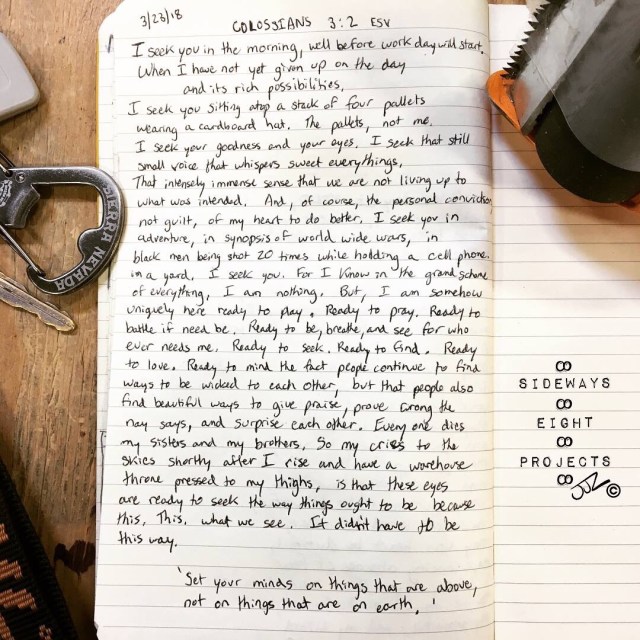 3/23/18
COLOSSIANS 3:2 ESV
I seek you in the morning, well before work day will start.
When I have not yet given up on the day
and its rich possibilities.
I seek you sitting atop a stack of four pallets
wearing a cardboard hat. The pallets, not me.
I seek your goodness and your eyes. I seek that still
small voice that whispers sweet everythings.
That intensely immense sense that we are not living up to
what was intended. And, of course, the personal conviction,
not guilt, of my heart to do better. I seek you in
adventure, in synopsis of world wide wars, in
black men being shot 20 times while holding a cell phone.
in a yard. I seek you. For I know in the grand scheme
of everything, I am nothing. But, I am somehow
uniquely here ready to play. Ready to pray. Ready to
battle if need be. Ready to be, breathe, and see for who
ever needs me. Ready to seek. Ready to find. Ready
to love. Ready to mind the fact people continue to find
ways to be wicked to each other, but that people also
find beautiful ways to give praise, prove wrong the
nay says, and surprise each other. Every one dies
my sisters and my brothers. So my cries to the
skies shortly after I rise and have a warehouse
throne pressed to my thighs, is that these eyes
are ready to seek the way things ought to be because
this. This. what we see. It didn't have to be
this way.
'Set your minds on things that are above,
not on things that are on earth.'
SIERRA NEVADA
SIDEWAYS
EIGHT
PROJECTS
©